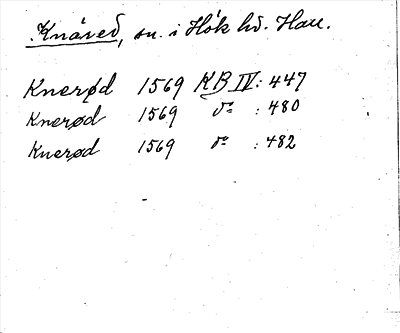 Knäred, sn. i Hök hd. Hall.
Knerød 1569 KB IV: 447
Knerød 1569 do : 480
Knerød 1569 do : 482